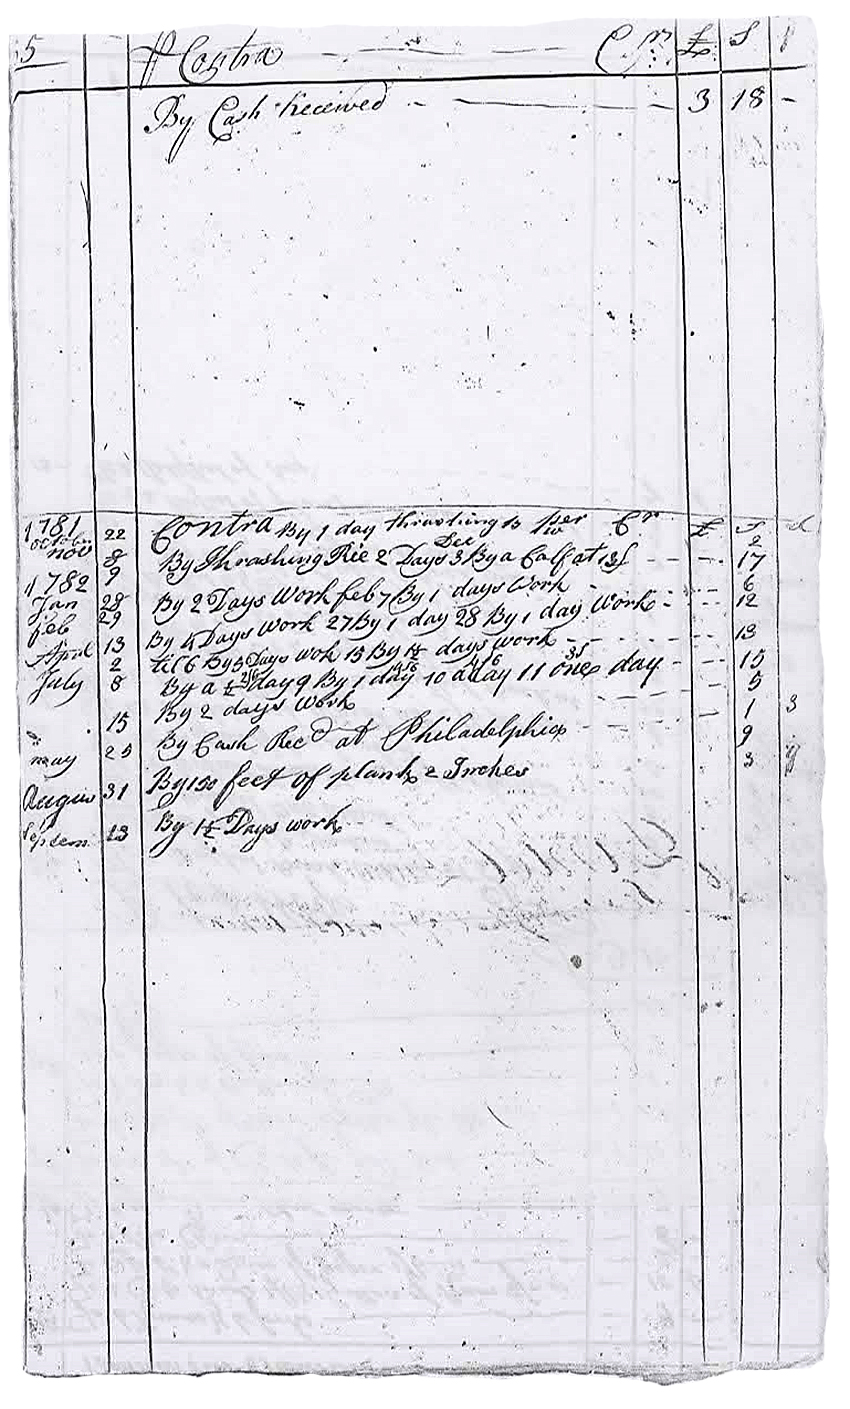 5 Contra Cr £ S
By Cash Received 3 18 -
1781 October 22 Contra By 1 day thrashing per Cr £ S d
2
nov 8 By Thrashing Rie 2 Days Dec 3 By a Calf at 13S 17
1782 9 6
Jan 28 By 2 Days Work feb 7 By 1 days Work 12
feb 29 By 4 Days Work 27 By 1 day 28 By 1 day Work
April 13 till 6 By 5 Days wok 15 By 1½ days work 13
2 15
July 8 By a ½ day 9 By 1 day 10 a day 11 one day 5
15 By 2 days Work 1 3
may 25 By Cash Recd at Philadelphia 9
3 9
Augus 31 By 150 feet of plank 2 Inches
Septem 13 By 1½ Days work